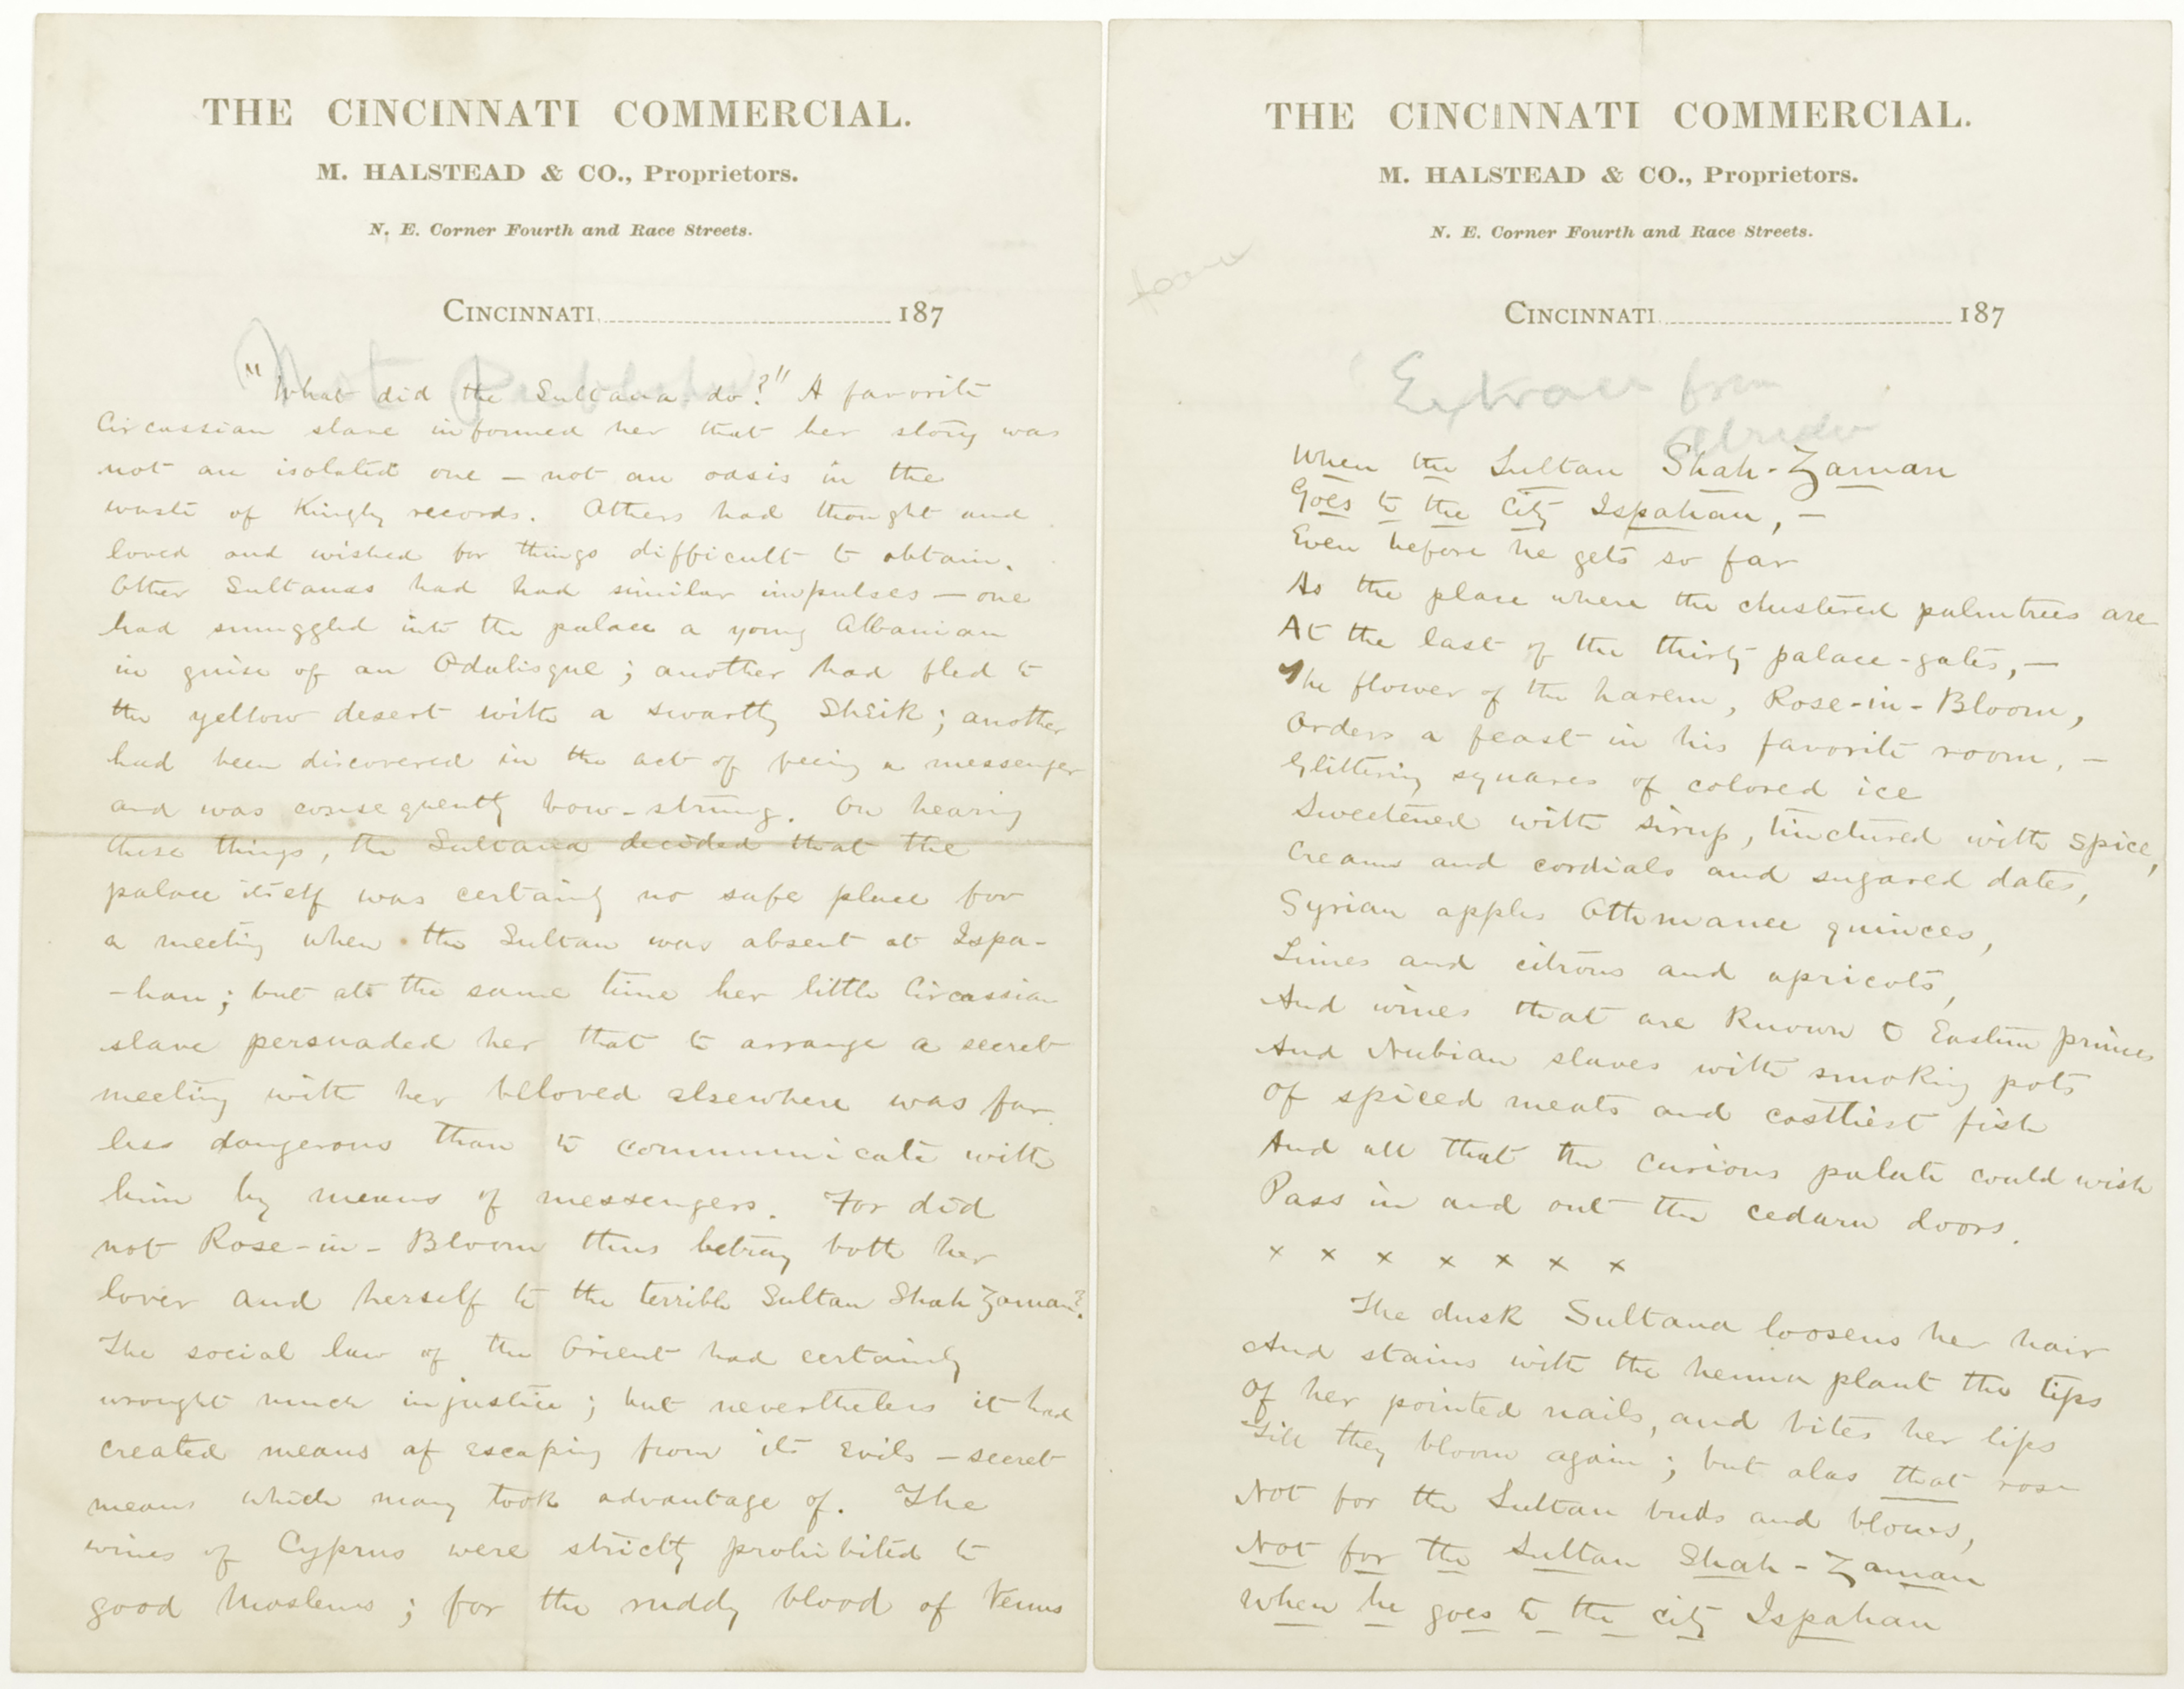 THE CINCINNATI COMMERCIAL.
M. HALSTEAD & CO., Proprietors.
N. E. Corner Fourth and Race Streets.
CINCINNATI 187
Not
"What did the Sultana do?" A favorite
Circassian slave informed her that her story was
not an isolated one — not an oasis in the
waste of Kingly records. Others had thought and
loved and wished for things difficult to obtain.
Other Sultanas had had similar impulses — one
had smuggled into the palace a young Albanian
in guise of an Odalisque; another had fled to
the yellow desert with a swarthy Sheik; another
had been discovered in the act of feeing a messenger
and was consequently bow-strung. On hearing
these things, the Sultana decided that the
palace itself was certainly no safe place for
a meeting when the Sultan was absent at Ispa-
-han; but at the same time her little Circassian
slave persuaded her that to arrange a secret
meeting with her beloved elsewhere was far
less dangerous than to communicate with
him by means of messengers. For did
not Rose-in-Bloom thus betray both her
lover and herself to the terrible Sultan Shah Zaman?
The social law of the Orient had certainly
wrought much injustice; but nevertheless it had
created means of escaping from its evils — secret
means which many took advantage of. The
wines of Cyprus were strictly prohibited to
good Moslems; for the ruddy blood of Venus
THE CINCINNATI COMMERCIAL.
M. HALSTEAD & CO., Proprietors.
N. E. Corner Fourth and Race Streets.
CINCINNATI 187
Extract from
When the Sultan Shah-Zaman
Goes to the City Ispahan, —
Even before he gets so far
As the place where the clustered palmtrees are
At the last of the thirty palace-gates, —
The flower of the harem, Rose-in-Bloom,
Orders a feast in his favorite room, —
Glittering squares of colored ice
Sweetened with sirup, tinctured with spice,
Creams and cordials and sugared dates,
Syrian apples Othmanee quinces,
Limes and citrons and apricots,
And wines that are Known to Eastern princes
And Nubian slaves with smoking pots
Of spiced meats and costliest fish
And all that the curious palate could wish
Pass in and out the cedarn doors.
x x x x x x x
The dusk Sultana loosens her hair
And stains with the henna plant the tips
Of her pointed nails, and bites her lips
Till they bloom again; but alas that rose
Not for the Sultan buds and blows,
Not for the Sultan Shah-Zaman
When he goes to the city Ispahan